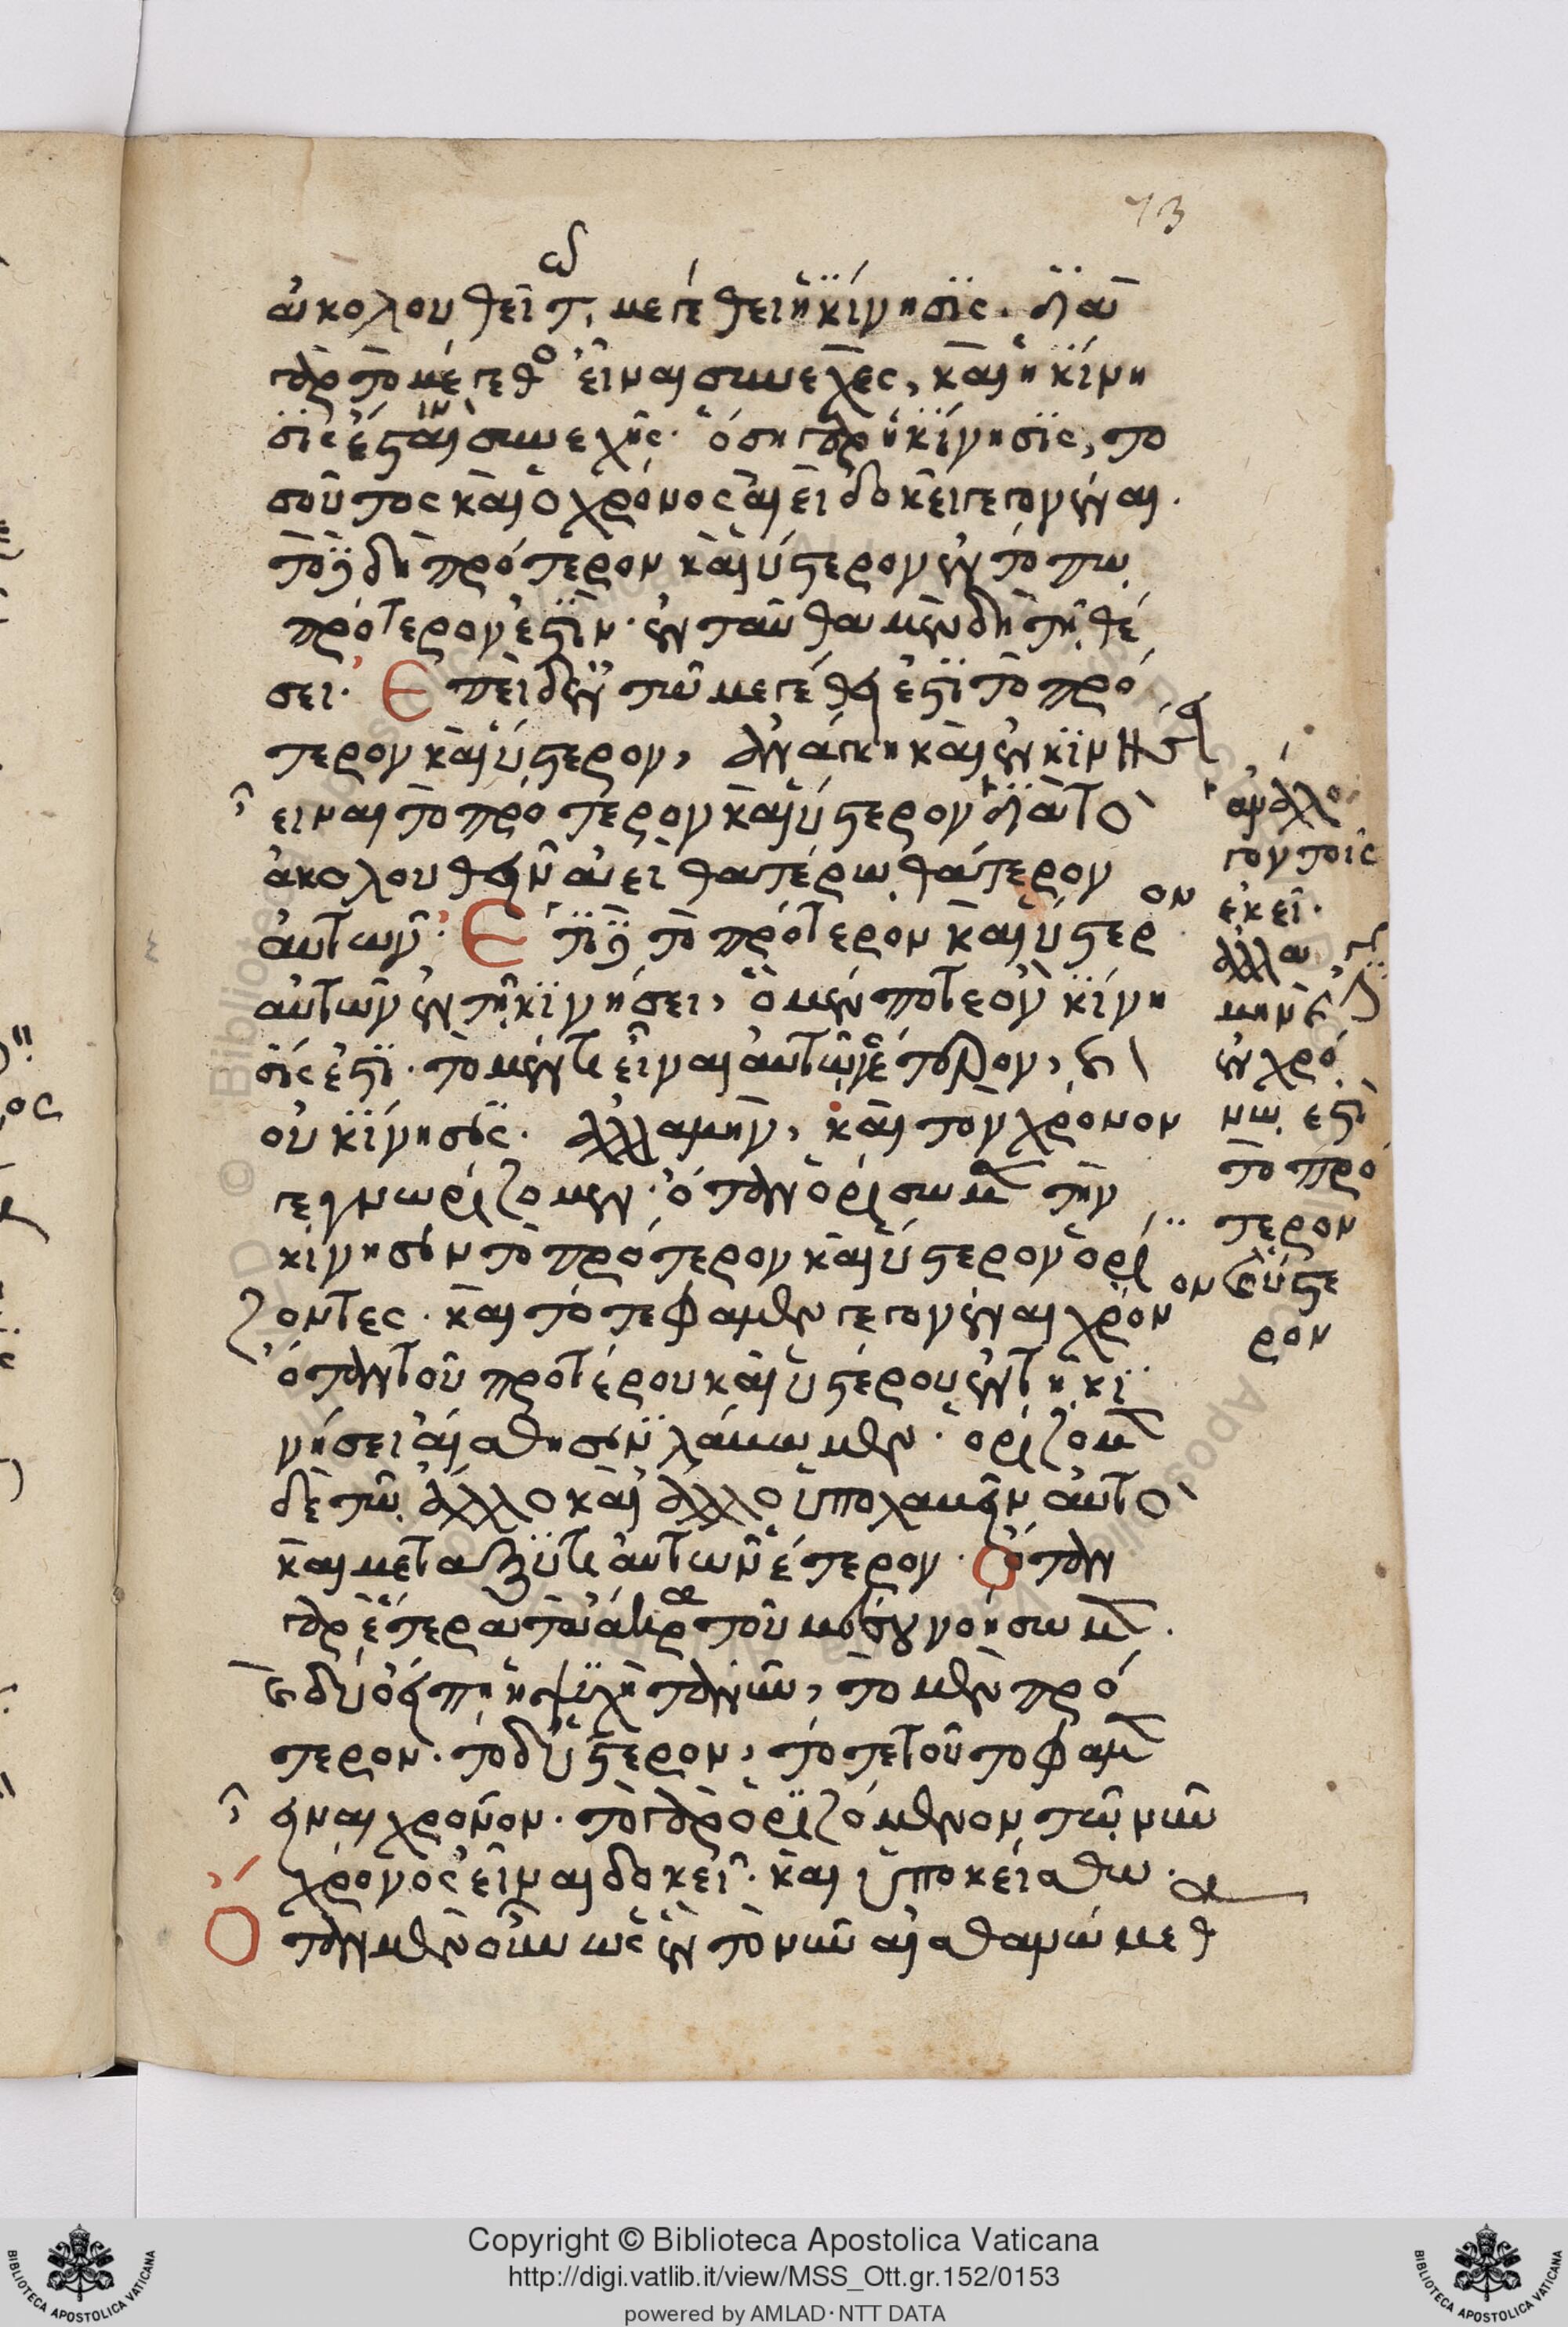 73
ἀκολουθεῖ τῷ μεγέθει ἡ κίνησις. διὰ
γὰρ τὸ μέγεθος εἶναι συνεχὲς, καὶ ἡ κίνη
σίς ἐστιν συνεχής. ὅση γὰρ ἡ κίνησις, το
σοῦτος καὶ ὁ χρόνος ἀεὶ δοκεῖ γεγονέναι.
τὸ δὴ πρότερον καὶ ὕστερον ἐν τόπῳ
πρότερον ἐστὶν. ἐνταῦθα μὲν δὴ τῇ θέ
σει. Ἐπεὶ δ' ἐν τῷ μεγέθει ἐστὶ τὸ πρό
τερον καὶ ὕστερον, ἀνάγκη καὶ ἐν κινήσει
εἶναι τὸ πρότερον καὶ ὕστερον διὰ τὸ
ἀκολουθεῖν ἀεὶ θατέρῳ θάτερον
αὐτῶν. Ἔστι δὲ τὸ πρότερον καὶ ὕστερον
αὐτῶν ἐν τῇ κινήσει, ὃ μέν ποτε ὂν κίνη
σίς ἐστι. τὸ μέντοι εἶναι αὐτῷ ἕτερον, καὶ
οὐ κίνησις. ἀλλὰ μὴν, καὶ τὸν χρόνον
γε γνωρίζομεν. ὅταν ὁρίσωμεν τὴν
κίνησιν τὸ πρότερον καὶ ὕστερον ὁρί
ζοντες. καὶ τότε φαμὲν γεγονέναι χρόνον
ὅταν τοῦ προτέρου καὶ ὑστέρου ἐν τῇ κι
νήσει αἴσθησιν λάβωμεν. ὁρίζομεν
δὲ τῷ ἄλλο καὶ ἄλλο ὑπολαβεῖν αὐτὸ
καὶ μεταξύ τι αὐτῶν ἕτερον. Ὅταν
γὰρ ἕτερα τὰ ἄκρα τοῦ μέσου νοήσωμεν.
καὶ δύο εἴπῃ ἡ ψυχὴ τὰ νῦν, τὸ μὲν πρό
τερον. τὸ δ' ὕστερον, τότε τοῦτο φαμὲν
εἶναι χρόνον. τὸ γὰρ ὁριζόμενον τῷ νῦν
χρόνος εἶναι δοκεῖ. καὶ ὑποκείσθω.
Ὅταν μὲν οὖν ὡς ἓν τὸ νῦν αἰσθανώμεθα
ἀνάλο
γον τοῖς
ἐκεῖ.
ἀλλὰ
μὴν καὶ
ἐν χρό
νῳ ἐστὶ
τὸ πρό
τερον
καὶ ὕστε
ρον
Copyright © Biblioteca Apostolica Vaticana
http://digi.vatlib.it/view/MSS_Ott.gr.152/0153
powered by AMLAD·NTT DATA
BIBLIOTECA APOSTOLICA VATICANA
BIBLIOTECA APOSTOLICA VATICANA